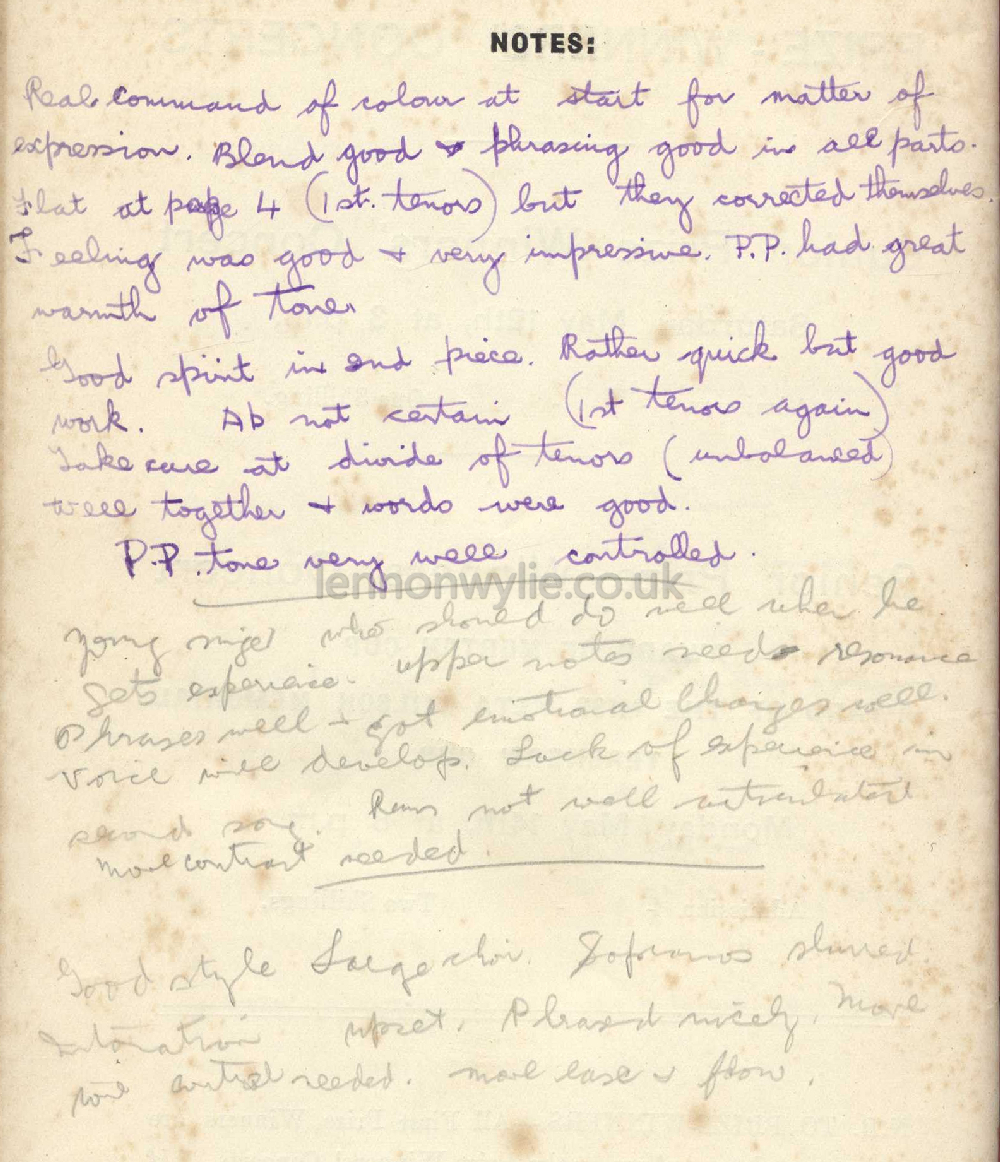 NOTES:
Real command of colour at start for matter of
expression. Blend good & phrasing good in all parts.
flat at page 4 (1st. tenors) but they corrected themselves.
Feeling was good + very impressive. P.P. had great
warmth of tone.
Good spirit in 2nd piece. Rather quick but good
work. Ab not certain (1st tenors again)
Take care at divide of tenors (unbalanced)
well together + words were good.
P.P. tone very well controlled.
lennonwylie.co.uk
young singer who should do well when he
gets experience. upper notes need resonance
Phrases well + got emotional changes well.
Voice will develop. Lack of experience in
second song. Runs not well articulated
more contrast needed.
Good style Large choir. Sopranos slurred
Intonation upset. Phrased nicely. More
tone control needed. more ease & flow.